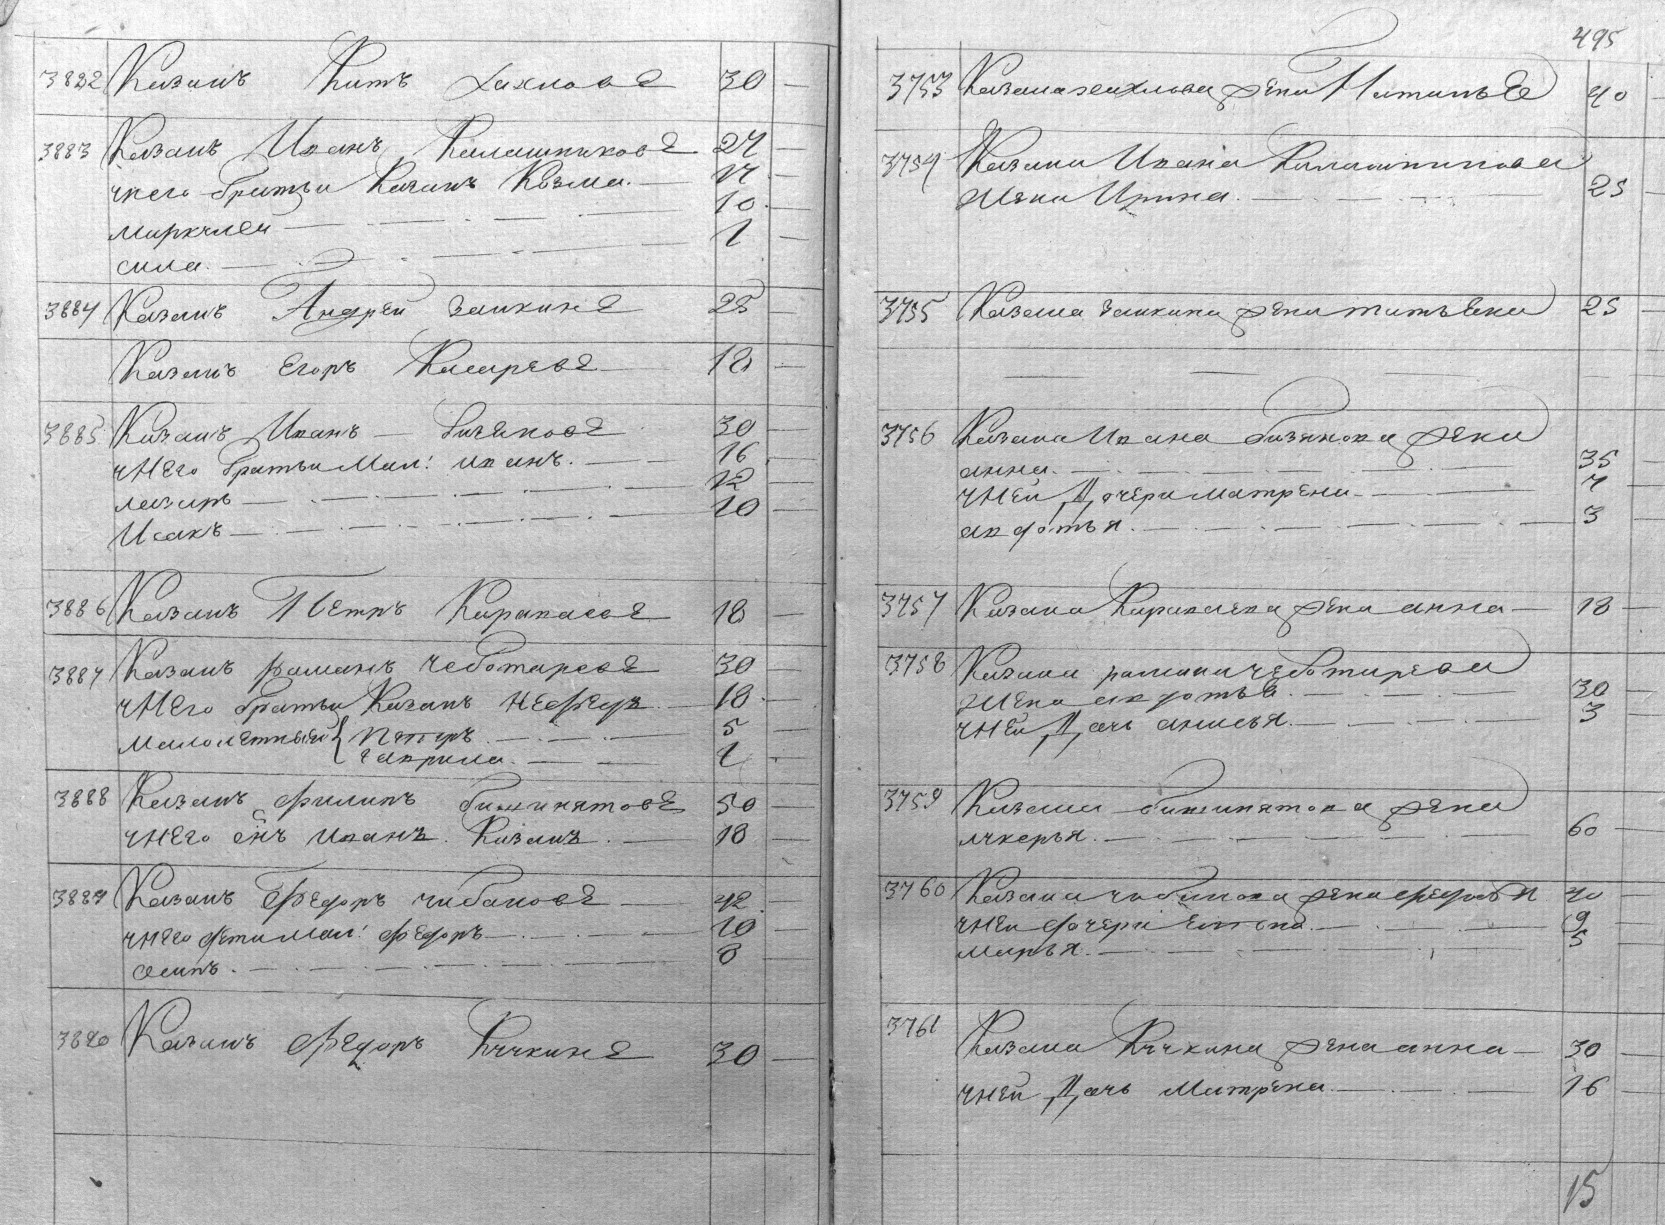 3882 Казакъ Китъ Хахловъ 30 —
3883 Казакъ Иванъ Калашниковъ 27 —
унего братьи Казакъ Козма. — 17 —
Маркулей — 10 —
сила. — 1 —
3884 Казакъ Андрей Заикинъ 25 —
Казакъ Егоръ — 18 —
3885 Казакъ Иванъ — Бизяковъ 30 —
унего братьи Мал: иванъ. — 16
лазарь — 12 —
Исакъ — 10 —
3886 Казакъ Петръ 18 —
3887 Казакъ раманъ чеботаревъ 30 —
унего братьи Казакъ нефедъ — 18 —
малолетный { Петръ — 5 —
гаврила — 1 —
3888 Казакъ филипъ 50 —
унего снъ иванъ. Казакъ. — 18 —
3889 Казакъ Федоръ чибаковъ — 42 —
унего дети Мал: федоръ — 10 —
осипъ. — 8 —
3890 Казакъ Федоръ Кучкинъ 30 —
495
3753 Казака хахлова жена 40 —
3754 Казака Ивана Калашникова
Жена Ирина. — 25 —
3755 Казака Заикина жена 25 —
— — — —
3756 Казака Ивана бизякова жена
анна. — 35 —
уней Дочери матрена — 7 —
авдотья. — 3 —
3757 Казака жена анна — 18 —
3758 Казака рамана чеботарева
Жена авдотья. — 30 —
уней Дочь анисья. — 3 —
3759 Казака жена
лукерья. — 60 —
3760 Казака чибакова жена федосья 40 —
уней дочери — 9 —
марья. — 5 —
3761 Казака Кучкина жена анна — 30 —
уней Дочь Матрена — 16 —
15